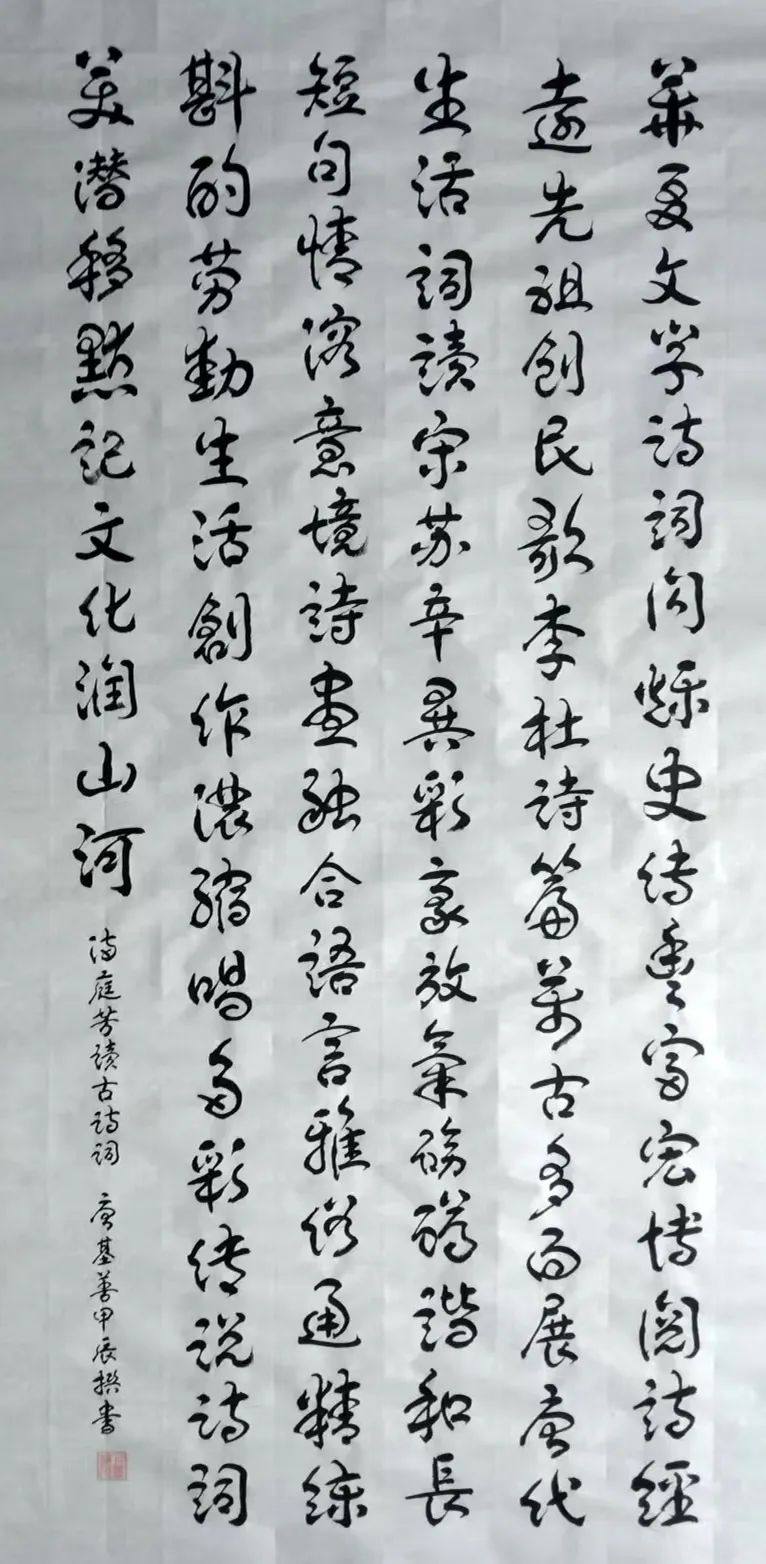 華夏文学诗詞闪爍史传豐富宏博阅诗經
遠先祖创民歌李杜詩篇萬古多面展唐代
生活詞讀宋苏辛異彩豪放氣磅礴諧和長
短句情溶意境詩画融合語言雅俗通精练
斟酌劳動生活創作濃縮唱多彩传说诗詞
美潜移默記文化潤山河
满庭芳读古诗詞 唐基善甲辰撰书